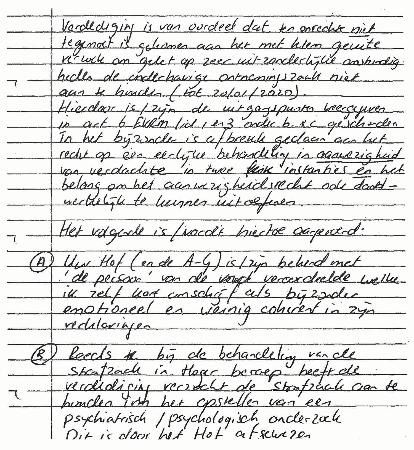 Verdediging is van oordeel dat ten onrechte niet
tegemoet is gekomen aan het met klem geuite
verzoek om gelet op zeer uitzonderlijke omstandig-
heden de onderhavige ontnemingszaak niet
aan te houden. (tot 20/01/2020).
Hierdoor is/zijn de uitgangspunten weergegeven
in art 6 EVRM lid 1 en 3 onder b. & c geschonden
In het bijzonder is afbreuk gedaan aan het
recht op een eerlijke behandeling in aanwezigheid
van verdachte in twee instanties en het
belang om het aanwezigheidsrecht ook daad-
werkelijk te kunnen uitoefenen.
Het volgende is/wordt hiertoe aangevoerd:
(A) Uw Hof (en de A-G) is/zijn bekend met
'de persoon' van de veroordeelde welke
ik zelf omschrijf als bijzonder
emotioneel en weinig coherent in zijn
verklaringen
(B) Reeds bij de behandeling van de
strafzaak in Hoger beroep heeft de
verdediging verzocht de strafzaak aan te
houden ivm het opstellen van een
psychiatrisch/psychologisch onderzoek
Dit is door het Hof afgewezen